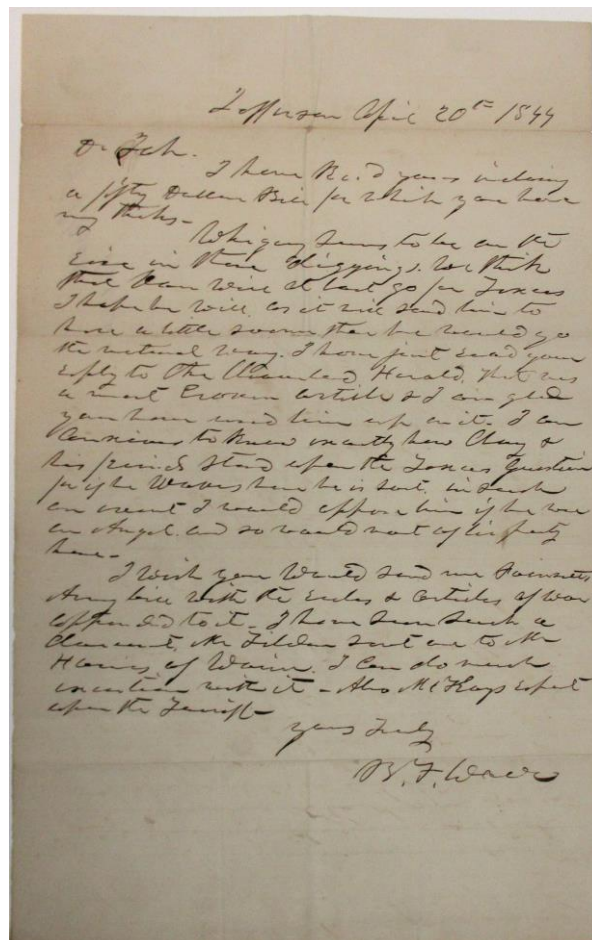 Jefferson April 20th 1844
Dr Sir.
I have Rec.d yours inclosing
a fifty Dollar Bill for which you have
my thanks-
Whigery seems to be on the
rise in these diggings. We think
that Van will at last go for Texas
I hope he will, as it will send him to
a little sooner than he would go
the natural way. I have just read your
reply to the Cleaveland Herald, that was
a most article & I am glad
you have used him up on it. I am
Anxious to know exactly how Clay &
his friends stand upon the Texas question
for if he Wavers here he is lost. in such
an event I would oppose him if he was
an Angel. and so would most of his party
here-
I wish you would send me Poinsetts
Army bill with the rules & articles of War
appended to it. I have seen such a
document, Mr Tilden sent one to Mr
of . I can do much
execution with it - Also McKays report
upon the Tariff-
yours Truly
B. F. Wade